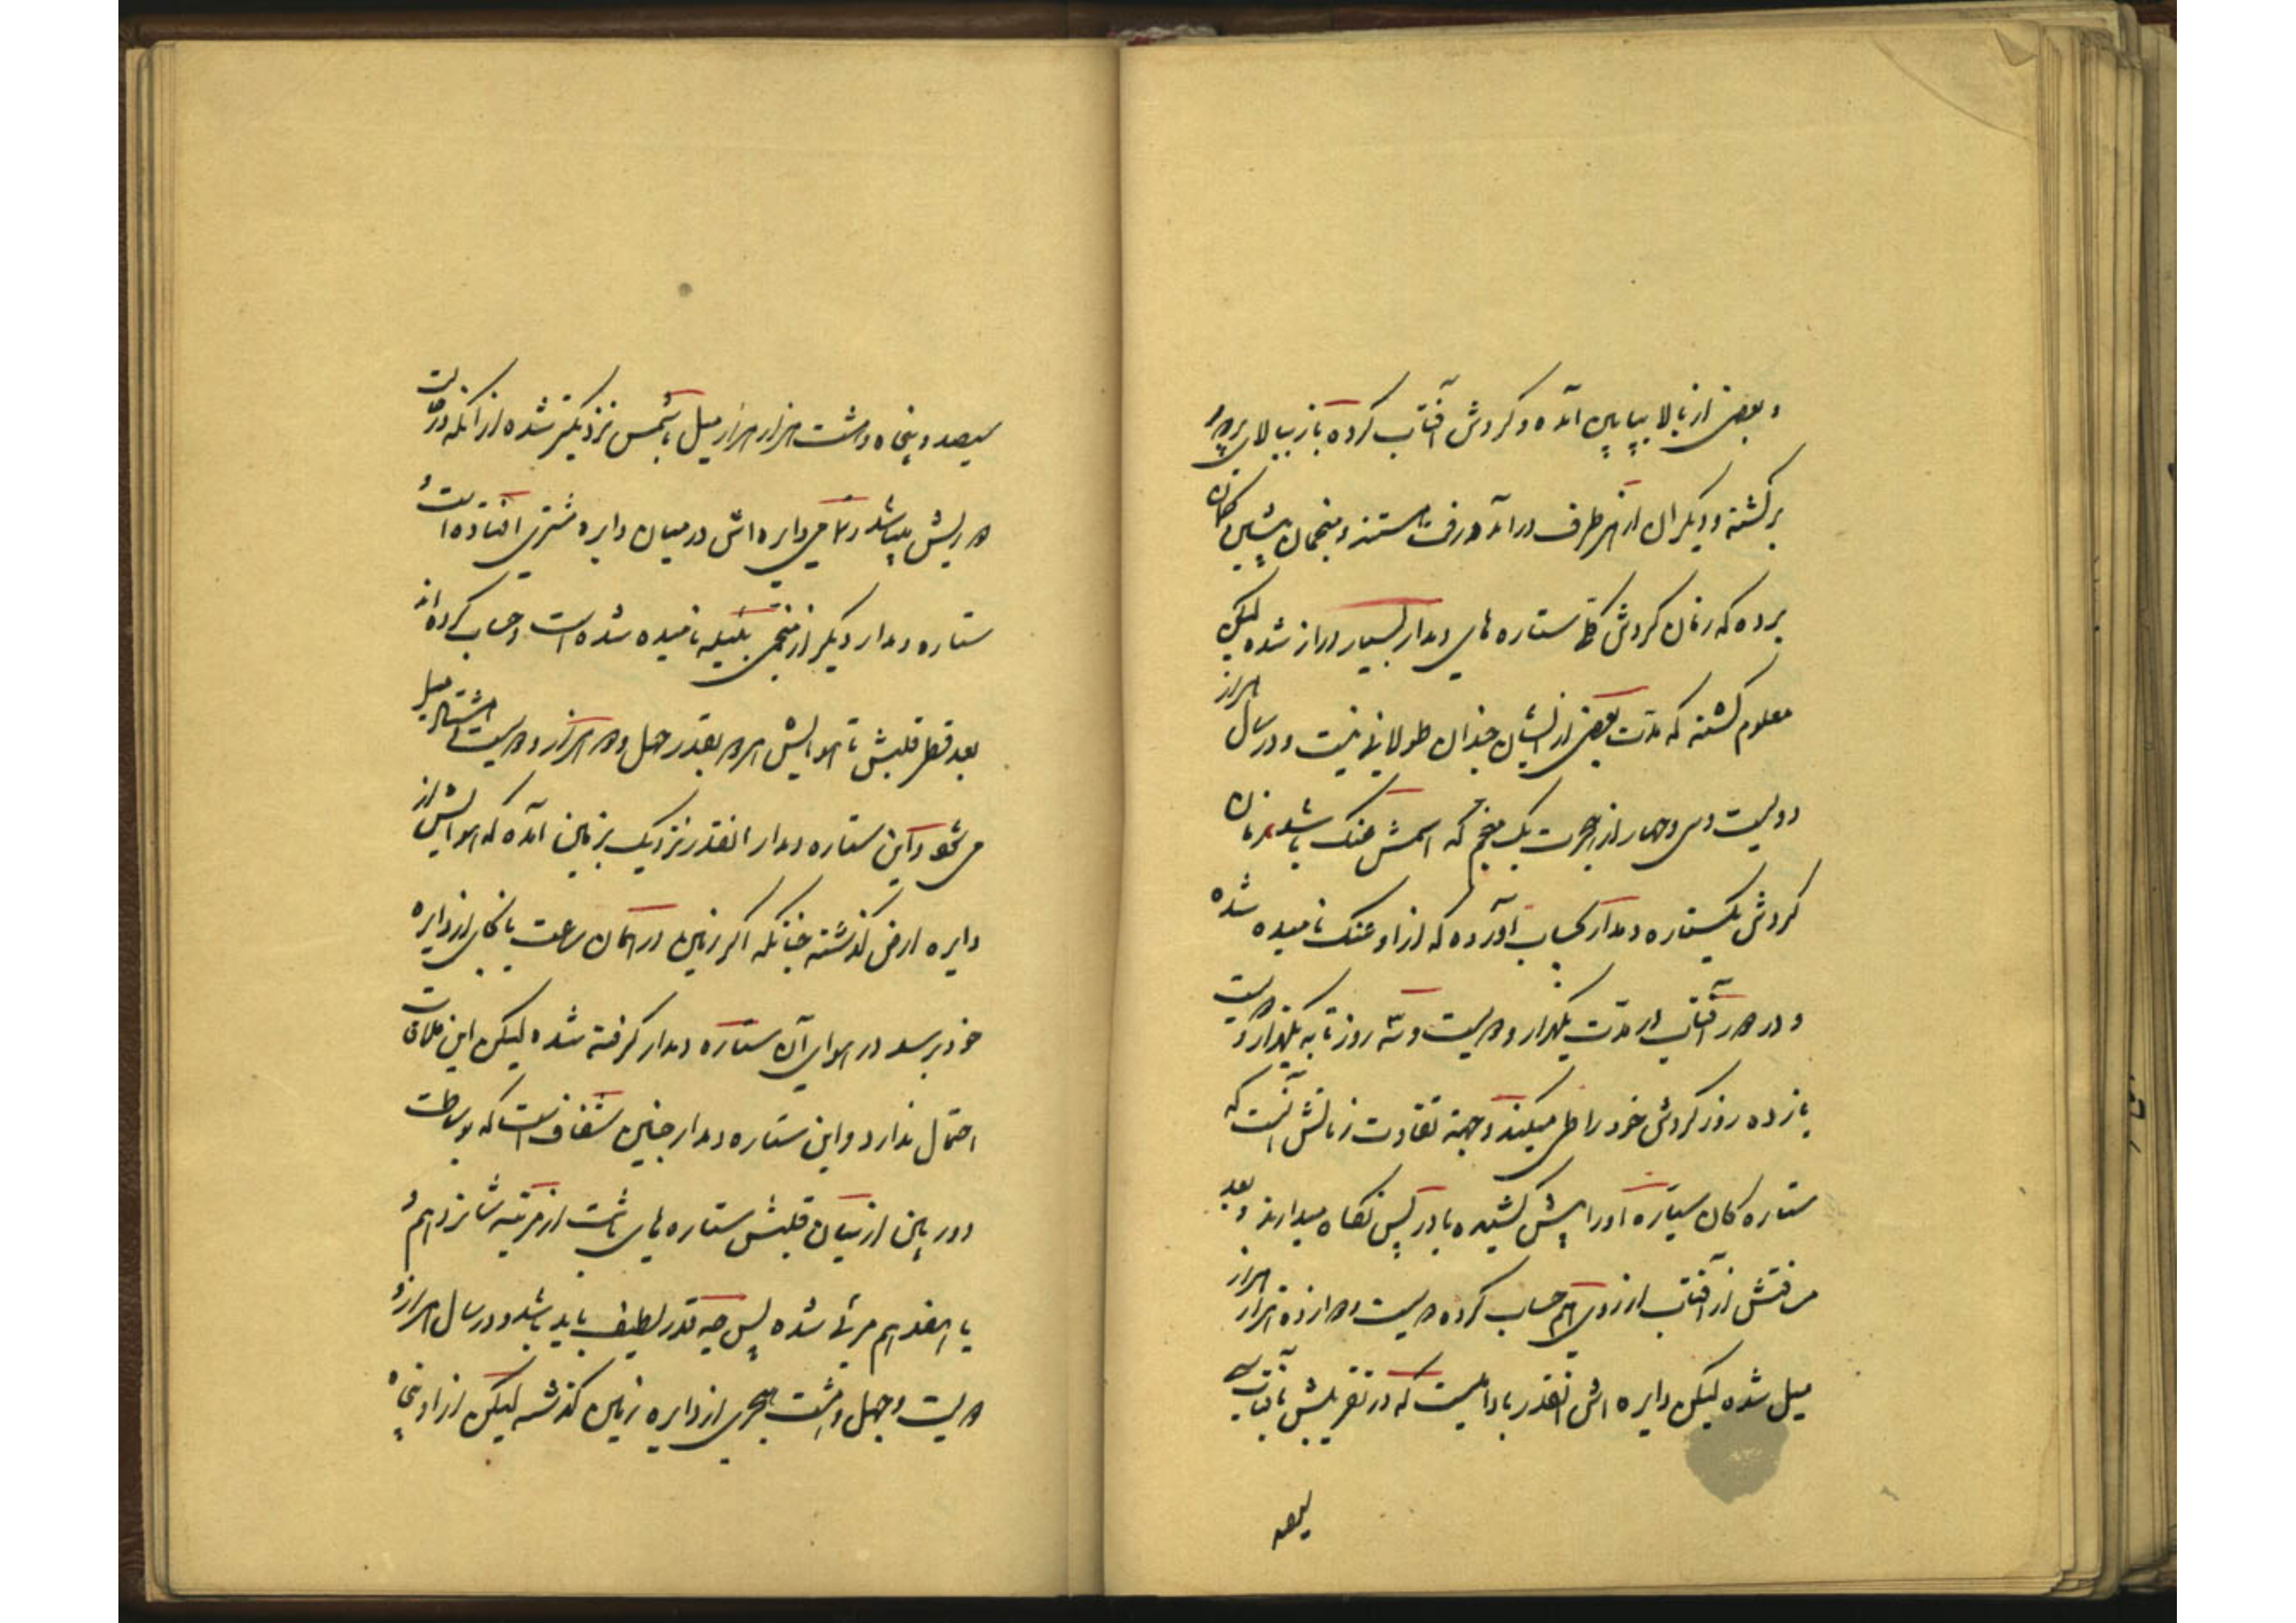 و بعضی از بالا بپایین آمده و گردش آفتاب کرده باز ببالای پرور
برگشته و دیگران از هر طرف در آمد و رفت هستند و منجمان پیشین گمان
برده که زمان گردش کل ستاره های دمدار بسیار دراز شده لیکن
معلوم گشته که مدت بعضی از ایشان چندان طولانی نیست و در سال هزار
دویست و سی و چهار از هجرت یک منجم که اسمش عنک باشد زمان
گردش یکستاره دمدار بحساب آورده که از او عنک نامیده شده
و در هر آفتاب در مدت یکهزار و دویست و سه روز تا به یکهزار و دویست
یازده روز گردش خود را طی میکند وجهة تفاوت زمانش آنست که
ستاره کان سیاره او را پیش کشیده یا در پس نگاه میدارند و بعد
مسافتش از آفتاب از روی هم حساب کرده دویست و دوازده هزار هزار
میل شده لیکن دایره اش آنقدر بادامیست که در تقریبش بآفتاب
سیصد
سیصد و پنجاه و هشت هزار هزار میل باشمس نزدیکتر شده از آنکه در
دوریش میباشد و تمامی دایره اش در میان دایره مشتری افتاده است و
ستاره دمدار دیگر از منجمی بئیله نامیده شده است و حساب کرده اند
بعد قطر قلبش با هوایش امروز بقدر چهل و دو هزار و دویست هشتاد میل
می شود و این ستاره دمدار آنقدر نزدیک بزمین آمده که هوایش از
دایره ارض گذشته چنانکه اگر زمین در همان ساعت بانجای از دایره
خود برسد در هوای آن ستاره دمدار گرفته شده لیکن این ملاقات
احتمال ندارد و این ستاره دمدار چنین شفاف است که بوساطت
دوربین از میان قلبش ستاره های ثابت از مرتبه شانزدهم و
یا هفدهم مرئی شده پس چه قدر لطیف باید باشد و در سال هزار و
دویست و چهل و هشت هجری از دایره زمین گذشته لیکن از او پنجاه